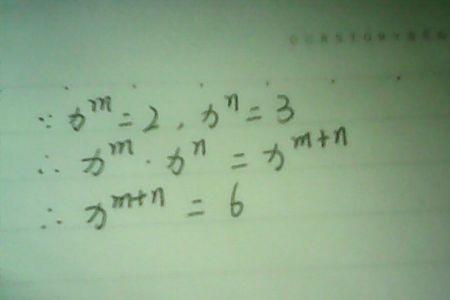 ∵ x^m = 2 , x^n = 3
∴ x^m · x^n = x^{m+n}
∴ x^{m+n} = 6